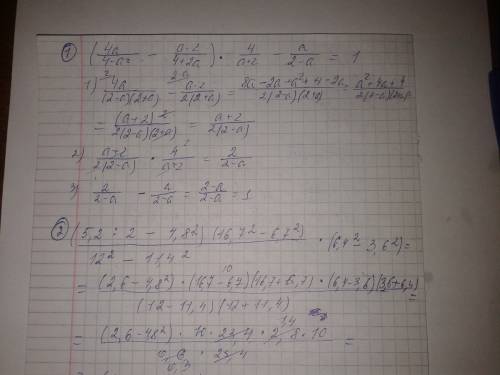 ① (4a/(4-a²) - (a-2)/(4+2a)) · 4/(a+2) - a/(2-a) = 1
1) 4a/((2-a)(2+a)) - (a-2)/(2(2+a)) = (8a-2a-a²+4-2a)/(2(2-a)(2+a)) = (a²+4a+4)/(2(2-a)(2+a))
= (a+2)²/(2(2-a)(2+a)) = (a+2)/(2(2-a))
2) (a+2)/(2(2-a)) · 4/(a+2) = 2/(2-a)
3) 2/(2-a) - a/(2-a) = (2-a)/(2-a) = 1
② (5,2 : 2 - 4,8²)(16,7² - 6,7²)/(12² - 11,4²) · (6,4² - 3,6²) =
= (2,6-4,8²) · (16,7-6,7)(16,7+6,7) · (6,4-3,6)(3,6+6,4)/((12-11,4)(12+11,4)) =
= (2,6-4,8²) · 10 · 23,4 · 2,8 · 10/(0,6 · 23,4) =